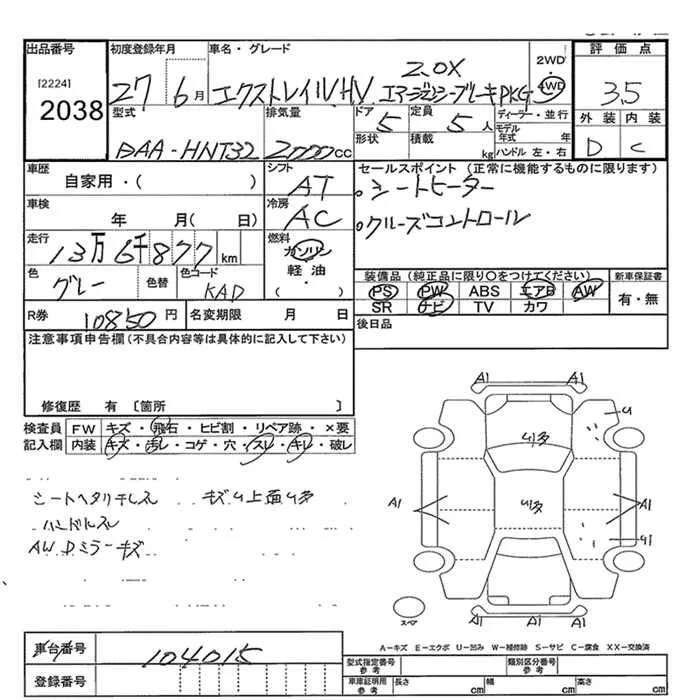 出品番号 初度登録年月 車名・グレード 2WD 評価点
[2224] 2038 27 6月 エクストレイルHV 2.0X エマージェンシーブレーキPKG 4WD 3.5
型式 排気量 ドア 定員 ディーラー・並行 外装 内装
DAA-HNT32 2000cc 5 5人 モデル年式 年 D C
形状 積載 kg ハンドル 左・右
車歴 シフト セールスポイント (正常に機能するものに限ります)
自家用・( ) AT ・シートヒーター
車検 冷房
年 月( 日) AC ・クルーズコントロール
走行 燃料
13万6千877km ガソリン
色 色替 色コード 軽油・ 装備品(純正品に限り○をつけてください) 新車保証書
グレー KAD ( ) PS PW ABS エアB AW 有・無
R券 10850円 名変期限 月 日 SR ナビ TV カワ
注意事項申告欄(不具合内容等は具体的に記入して下さい) 後日品
修復歴 有 [箇所 ]
検査員 FW キズ・飛石・ヒビ割・リペア跡・×要
記入欄 内装 キズ・汚レ・コゲ・穴・スレ・キレ・破レ
シートヘタリ キズU上面U多
ハンドルスレ
AWDミラーキズ
A1 A1
U
U多
A1 U多 A1
A1 A1 A1
スペア
A-キズ E-エクボ U-凹み W-補修跡 S-サビ C-腐食 XX-交換済
車台番号 104015 型式指定番号 参考 類別区分番号 参考
登録番号 車庫証明用 参考 長さ cm 幅 cm 高さ cm